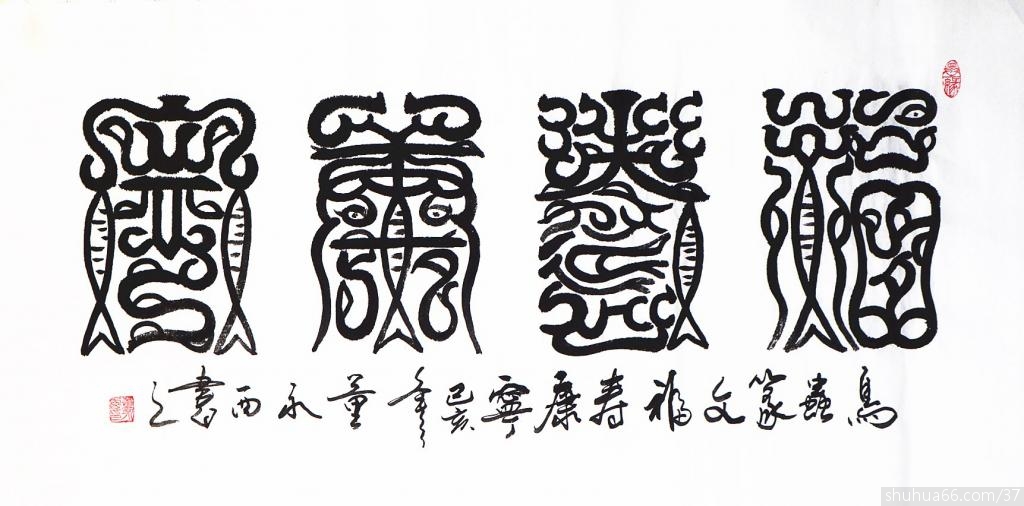 福壽康寧
鳥蟲篆文福寿康寧己亥年董永西書之
shuhua66.com/37